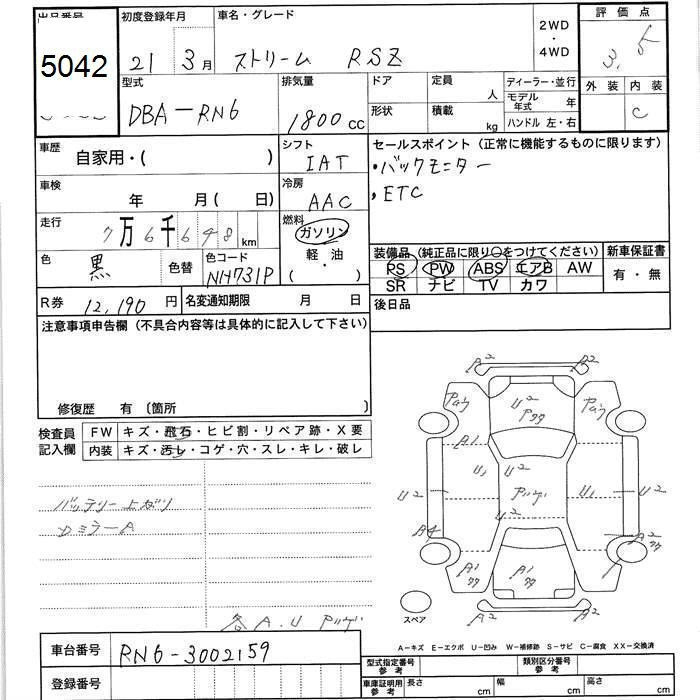 出品番号 初度登録年月 車名・グレード 2WD ・ 4WD 評価点
5042 21年 3月 ストリーム RSZ 3.5
型式 排気量 ドア 定員 人 ディーラー・並行 外装 内装
DBA-RN6 1800cc 形状 積載 kg モデル年式 年 C
ハンドル 左・右
車歴 自家用・( ) シフト IAT セールスポイント(正常に機能するものに限ります)
・バックモニター
車検 年 月( 日) 冷房 AAC ・ETC
走行 7万6千648km 燃料 ガソリン
軽・油
・( )
色 黒 色替 色コード NH731P
装備品(純正品に限り○をつけてください) 新車保証書
PS PW ABS エアB AW 有・無
SR ナビ TV カワ
R券 12,190円 名変通知期限 月 日 後日品
注意事項申告欄(不具合内容等は具体的に記入して下さい)
修復歴 有 〔箇所 〕
検査員 FW キズ・飛石・ヒビ割・リペア跡・X要
記入欄 内装 キズ・汚レ・コゲ・穴・スレ・キレ・破レ
バッテリー上がり
DミラーA
各A.U
A2 A2
U2
A1
U1 U2
U2 U1 U2
U2
A4 A2
A1 A1 A2
A2 A2
スペア
A-キズ E-エクボ U-凹み W-補修跡 S-サビ C-腐食 XX-交換済
車台番号 RN6-3002159
登録番号
型式指定番号 参考 類別区分番号 参考
車庫証明用 参考 長さ cm 幅 cm 高さ cm